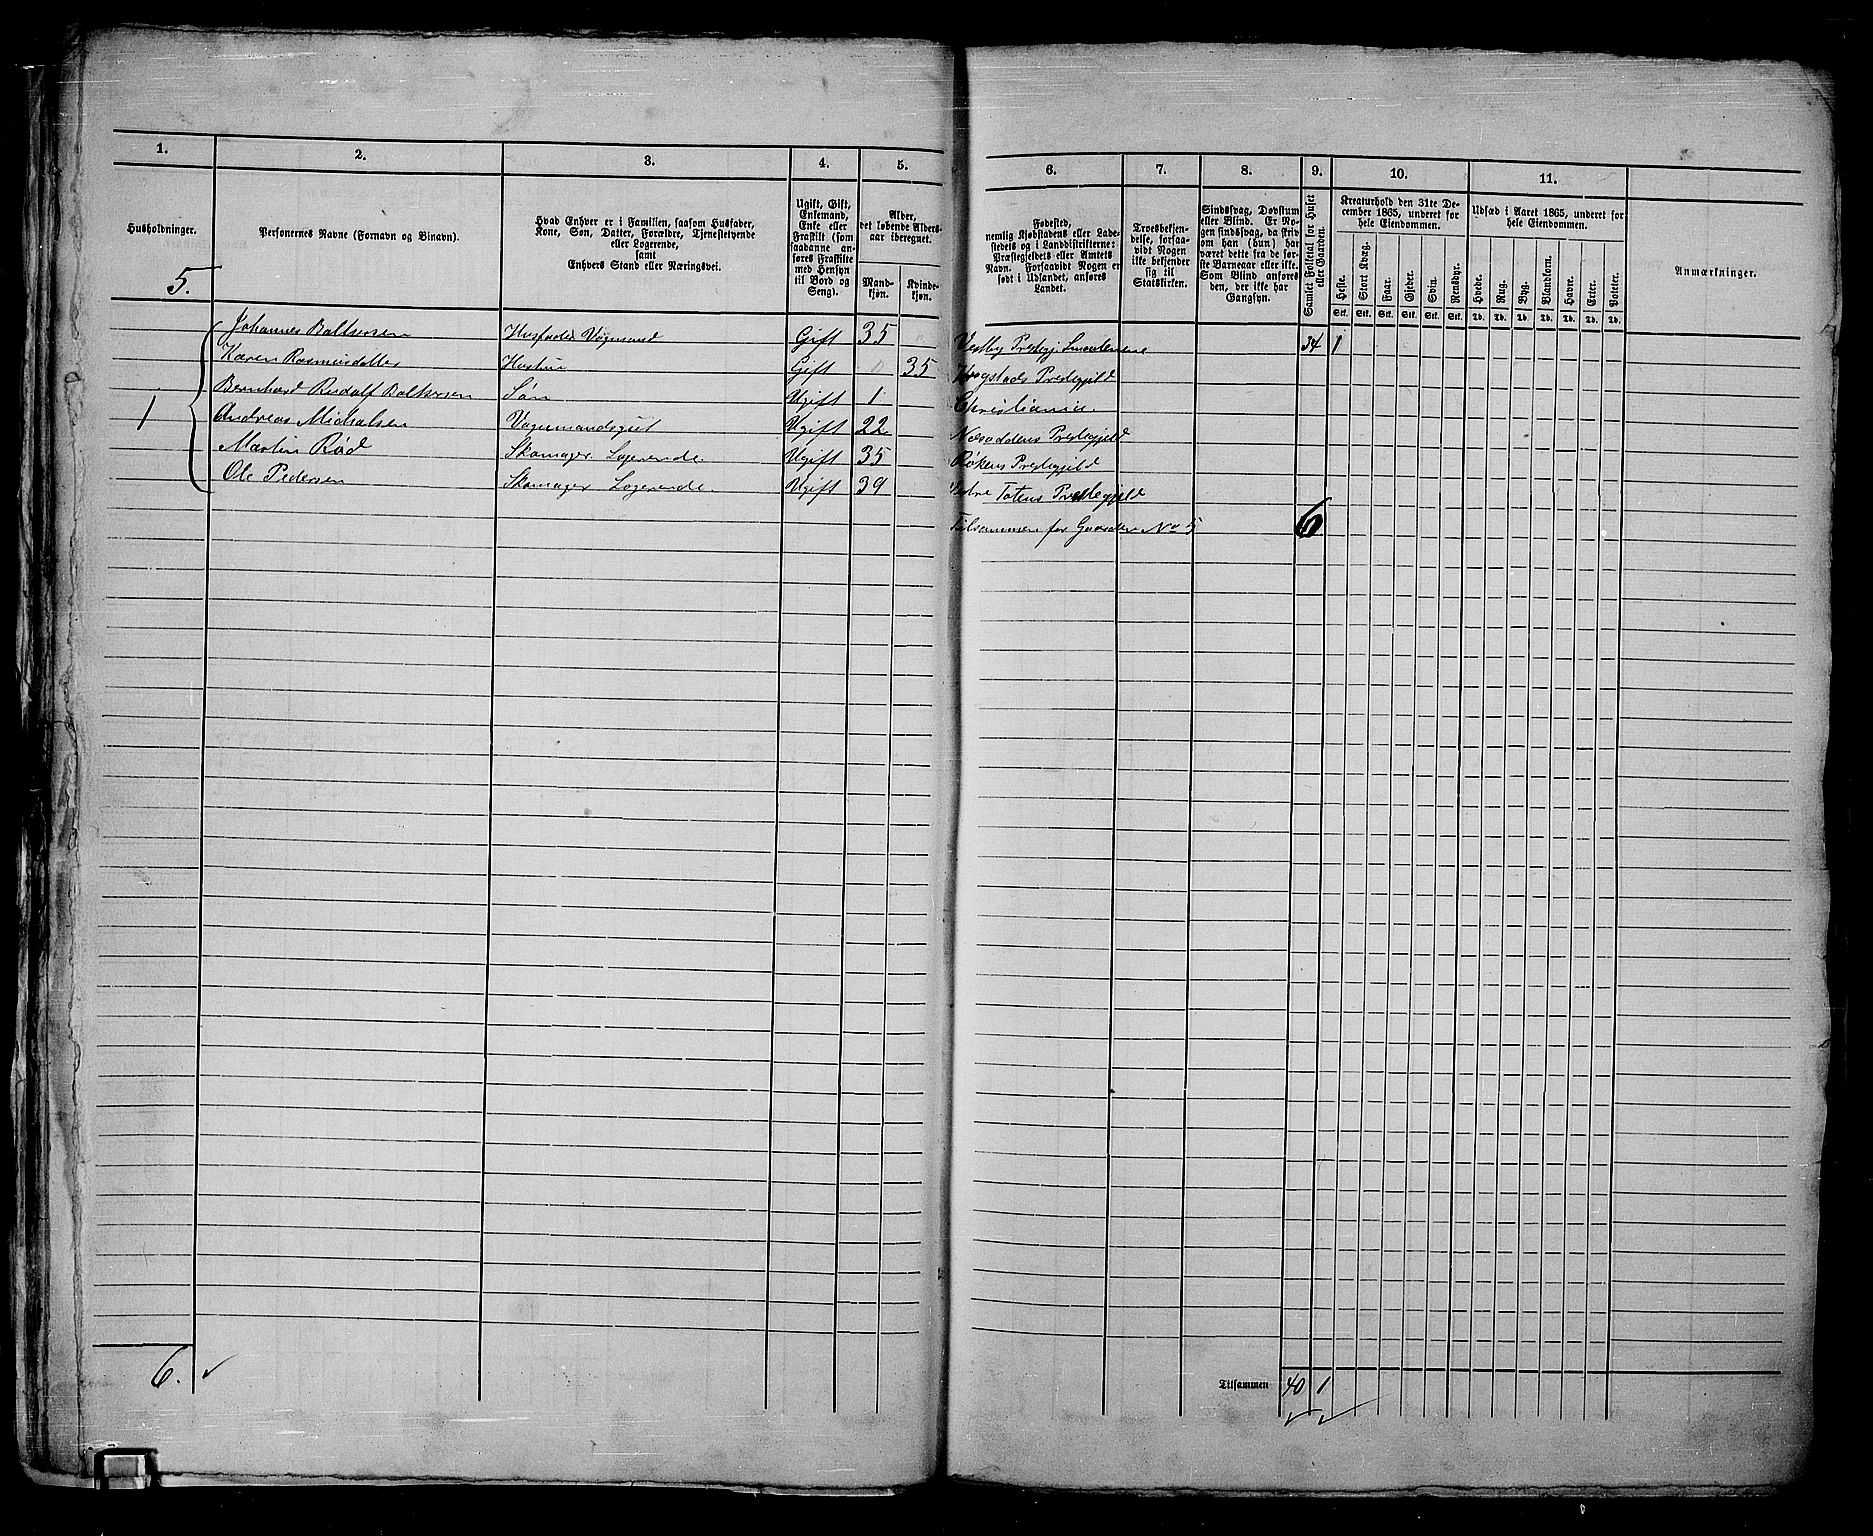 1. 2. 3. 4. 5. 6. 7. 8. 9. 10. 11.
Husholdninger.
5.
Personernes Navne (Fornavn og Binavn).
Hvad Enhver er i Familien, saasom Husfader,
Kone, Søn, Datter, Forældre, Tjenestetyende
eller Logerende,
samt
Enhvers Stand eller Næringsvei.
Ugift, Gift,
Enkemand,
Enke eller
Fraskilt (som
saadanne an-
føres Fraskilte
med Hensyn
til Bord og
Seng).
Alder,
det løbende Alders-
aar iberegnet.
Mand-
kjøn.
Kvinde-
kjøn.
Fødested,
nemlig Kjøbstadens eller Lade-
stedets og i Landdistrikterne:
Præstegjeldets eller Amtets
Navn. Forsaavidt Nogen er
født i Udlandet, anføres
Landet.
Troesbekjen-
delse, forsaa-
vidt Nogen
ikke bekjender
sig til
Statskirken.
Sindssvag, Døvstum
eller Blind. Er No-
gen sindssvag, da skriv
om han (hun) har
været dette fra de før-
ste Barneaar eller ikke.
Som Blind anføres
den, der ikke har
Gangsyn.
Samlet Folketal for Huset
eller Gaarden.
Kreaturhold den 31te De-
cember 1865, underet for
hele Eiendommen.
Heste. Stort Kvæg. Faar. Gjeder. Svin. Rensdyr.
Stk. Stk. Stk. Stk. Stk. Stk.
Udsæd i Aaret 1865, underet for
hele Eiendommen.
Hvede. Rug. Byg. Blandkorn. Havre. Erter. Poteter.
Td. Td. Td. Td. Td. Td. Td.
Anmærkninger.
Johannes Baltersen Husfader Vognmand Gift 35 Vestby Prestegj. Smaalenene 34 1
Karen Rasmusdatter Hustru Gift 35 Krogstads Prestegjeld
Bernhard Rudolf Baltersen Søn Ugift 1 Christiania.
1 Andreas Michalsen Vognmandsgut Ugift 22 Næsoddens Prestegjeld
Martin Rød Skomager Logerende. Ugift 35 Røkens Prestegjeld
Ole Pedersen Skomager Logerende. Ugift 39 Totens Prestegjeld
Tilsammen for Gaarden No 5 6
6.
Tilsammen 40 1